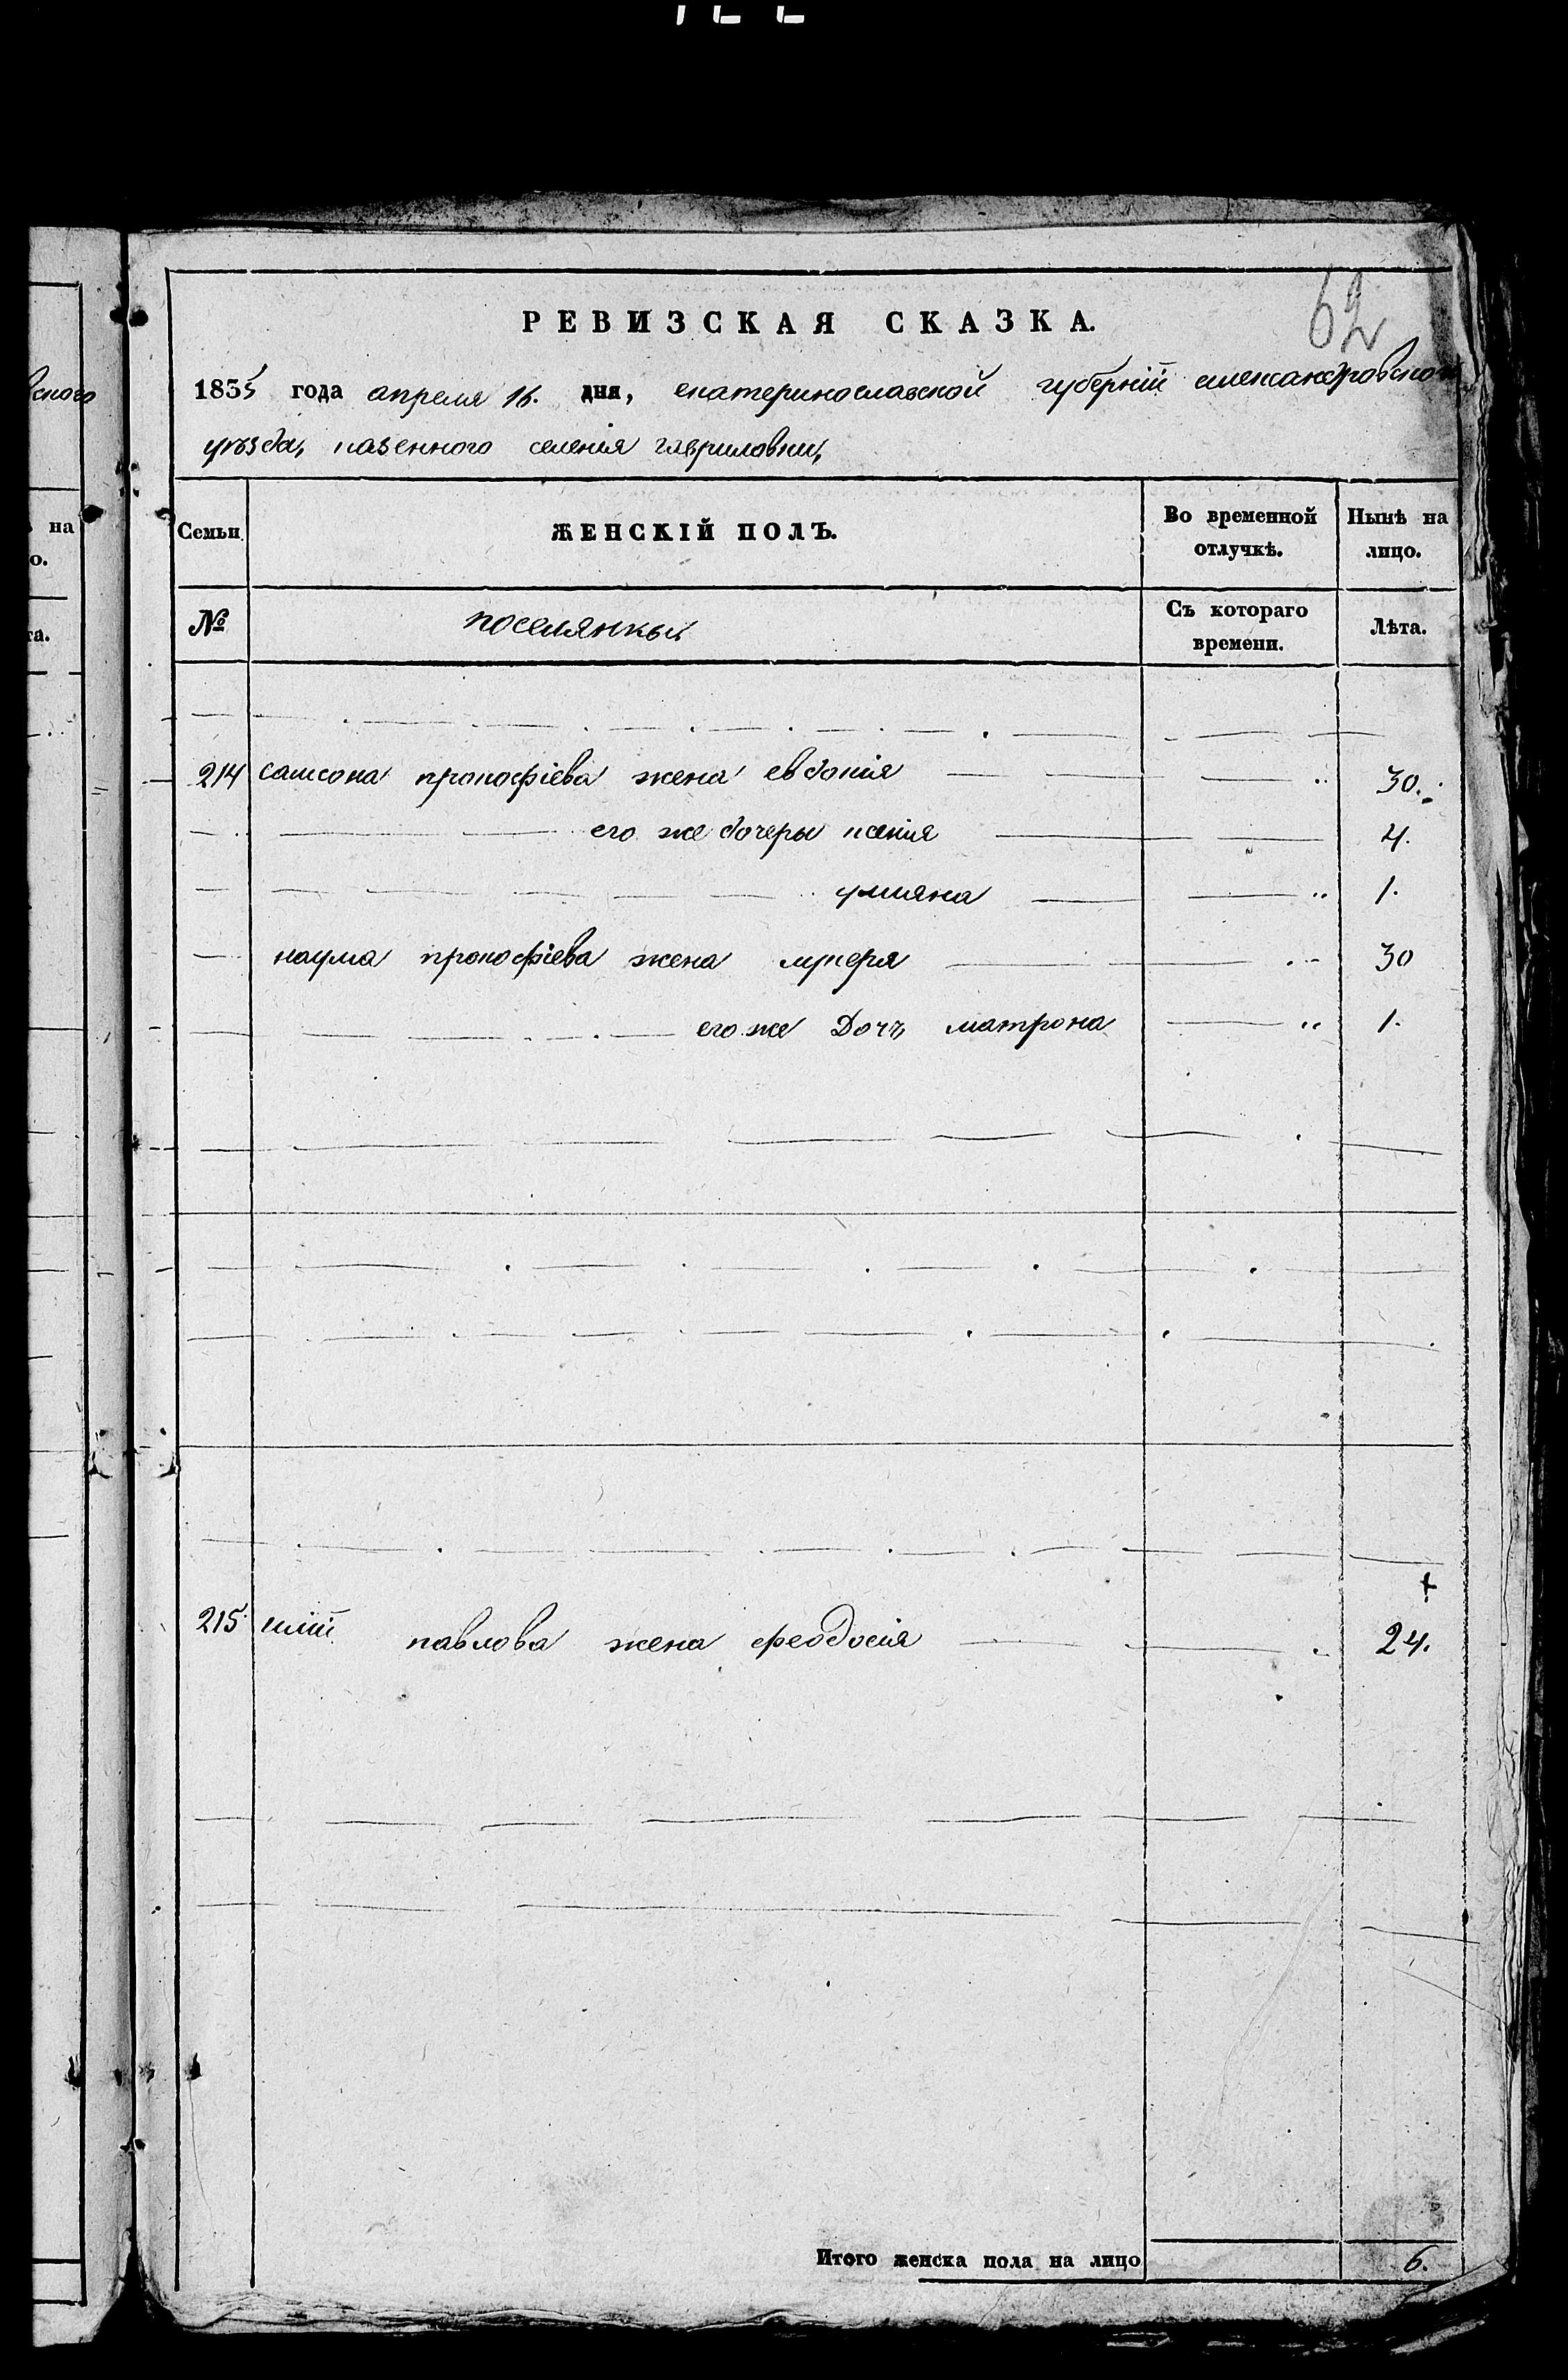 62
РЕВИЗСКАЯ СКАЗКА.
1835 года апреля 16. дня, екатеринославской губерніи александровского
уѣзда, казенного селенія гавриловки,
Семьи
ЖЕНСКІЙ ПОЛЪ.
Во временной отлучкѣ.
Нынѣ на лицо.
№
поселянки
Съ котораго времени.
Лѣта.
214 самсона прокофіева жена евдокия 30.
его же дочеры ксенія 4.
улияна 1.
наума прокофіева жена лукеря 30
его же Дочъ матрона 1.
215 павлова жена феодосія 24.
Итого женска пола на лицо 6.
вского
на
о.
та.